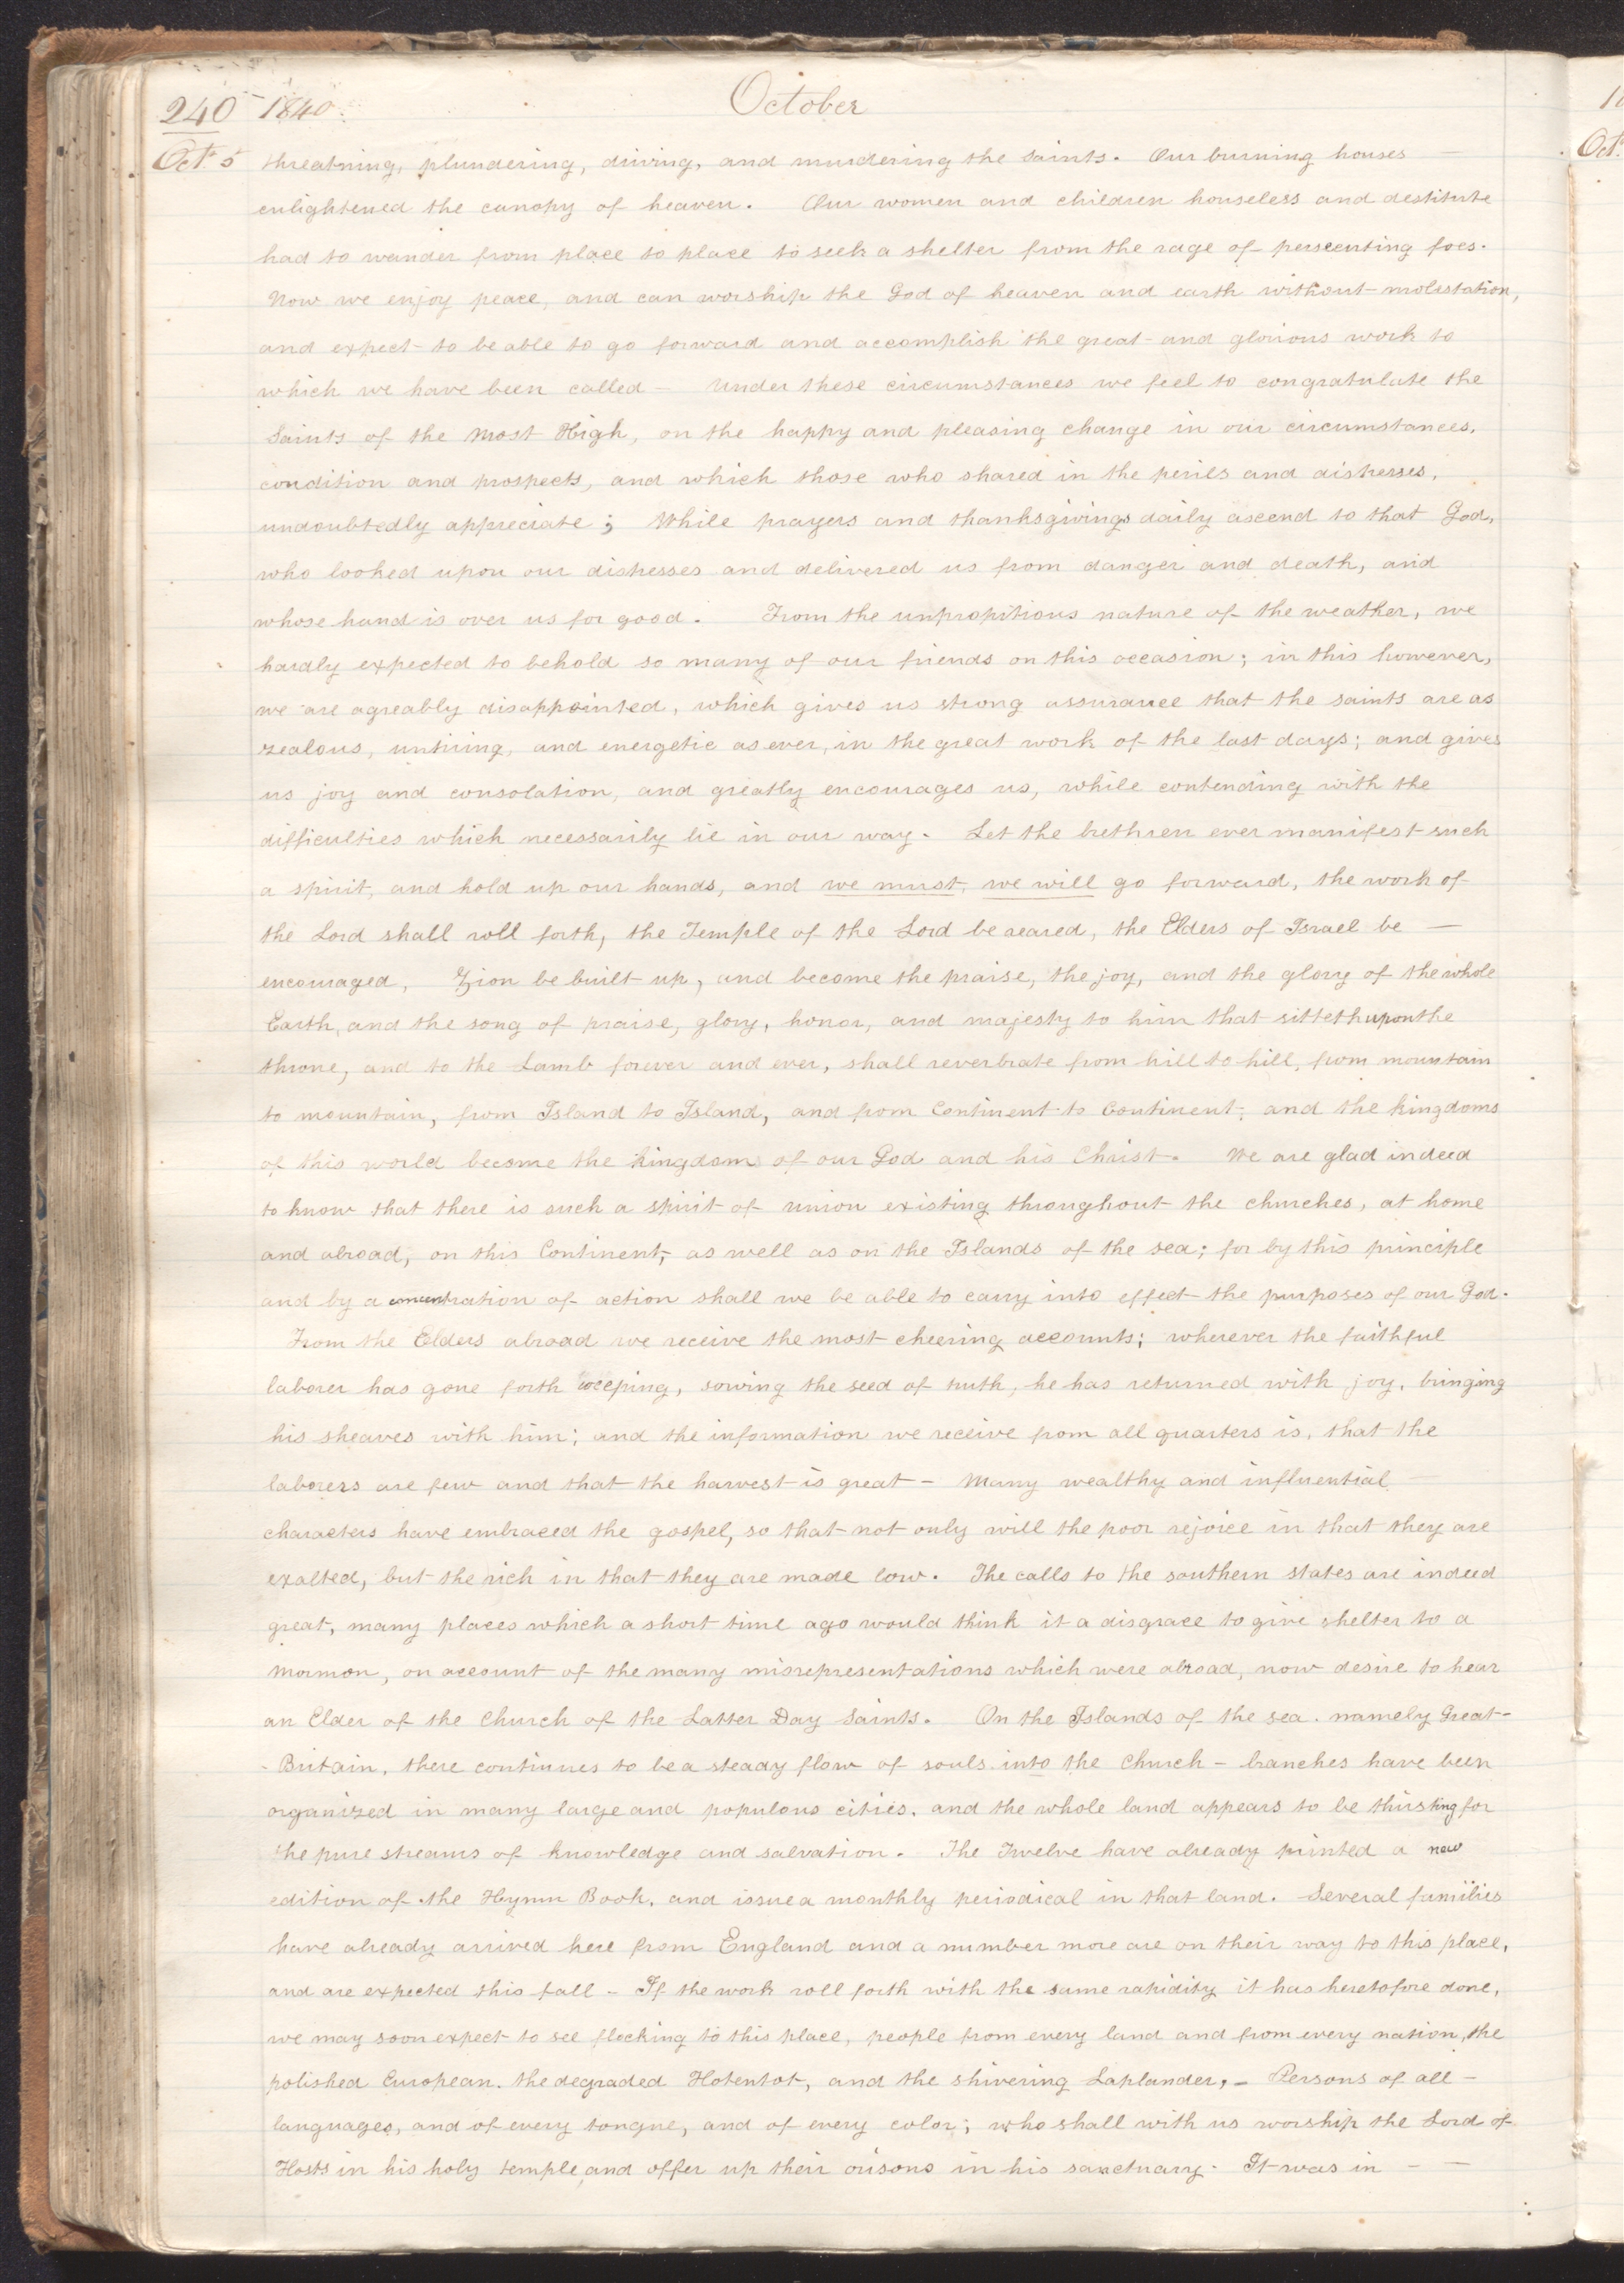 240 1840. October
Oct. 5 threatning, plundering, driving, and murdering the Saints. Our burning houses —
enlightened the canopy of heaven. Our women and children houseless and destitute
had to wander from place to place to seek a shelter from the rage of persecuting foes.
Now we enjoy peace, and can worship the God of heaven and earth without molestation,
and expect to be able to go forward and accomplish the great and glorious work to
which we have been called — Under these circumstances we feel to congratulate the
Saints of the Most High, on the happy and pleasing change in our circumstances,
condition and prospects, and which those who shared in the perils and distresses,
undoubtedly appreciate; While prayers and thanksgivings daily ascend to that God,
who looked upon our distresses and delivered us from danger and death, and
whose hand is over us for good. From the unpropitious nature of the weather, we
hardly expected to behold so many of our friends on this occasion; in this however,
we are agreably disappointed, which gives us strong assurance that the saints are as
zealous, untiring, and energetic as ever, in the great work of the last days; and gives
us joy and consolation, and greatly encourages us, while contending with the
difficulties which necessarily lie in our way. Let the brethren ever manifest such
a spirit, and hold up our hands, and we must, we will go forward, the work of
the Lord shall roll forth, the Temple of the Lord be reared, the Elders of Israel be —
encouraged, Zion be built up, and become the praise, the joy, and the glory of the whole
Earth, and the song of praise, glory, honor, and majesty to him that sitteth upon the
throne, and to the Lamb forever and ever, shall reverbrate from hill to hill, from mountain
to mountain, from Island to Island, and from Continent to Continent, and the kingdoms
of this world become the kingdoms of our God and his Christ. We are glad indeed
to know that there is such a spirit of union existing throughout the churches, at home
and abroad, on this Continent, as well as on the Islands of the sea; for by this principle
and by a concentration of action shall we be able to carry into effect the purposes of our God.
From the Elders abroad we receive the most cheering accounts; wherever the faithful
laborer has gone forth weeping, sowing the seed of truth, he has returned with joy, bringing
his sheaves with him; and the information we receive from all quarters is, that the
laborers are few and that the harvest is great — Many wealthy and influential
characters have embraced the gospel, so that not only will the poor rejoice in that they are
exalted, but the rich in that they are made low. The calls to the southern states are indeed
great, many places which a short time ago would think it a disgrace to give shelter to a
Mormon, on account of the many misrepresentations which were abroad, now desire to hear
an Elder of the Church of the Latter Day Saints. On the Islands of the sea. namely Great-
-Britain, there continues to be a steady flow of souls into the Church — branches have been
organized in many large and populous cities, and the whole land appears to be thirsting for
the pure streams of knowledge and salvation. The Twelve have already printed a new
edition of the Hymn Book, and issue a monthly periodical in that land. Several families
have already arrived here from England and a number more are on their way to this place,
and are expected this fall — If the work roll forth with the same rapidity it has heretofore done,
we may soon expect to see flocking to this place, people from every land and from every nation, the
polished European, the degraded Hotentot, and the shivering Laplander, — Persons of all —
languages, and of every tongue, and of every color; who shall with us worship the Lord of
Hosts in his holy temple, and offer up their orisons in his sanctuary. It was in — —
Oct.